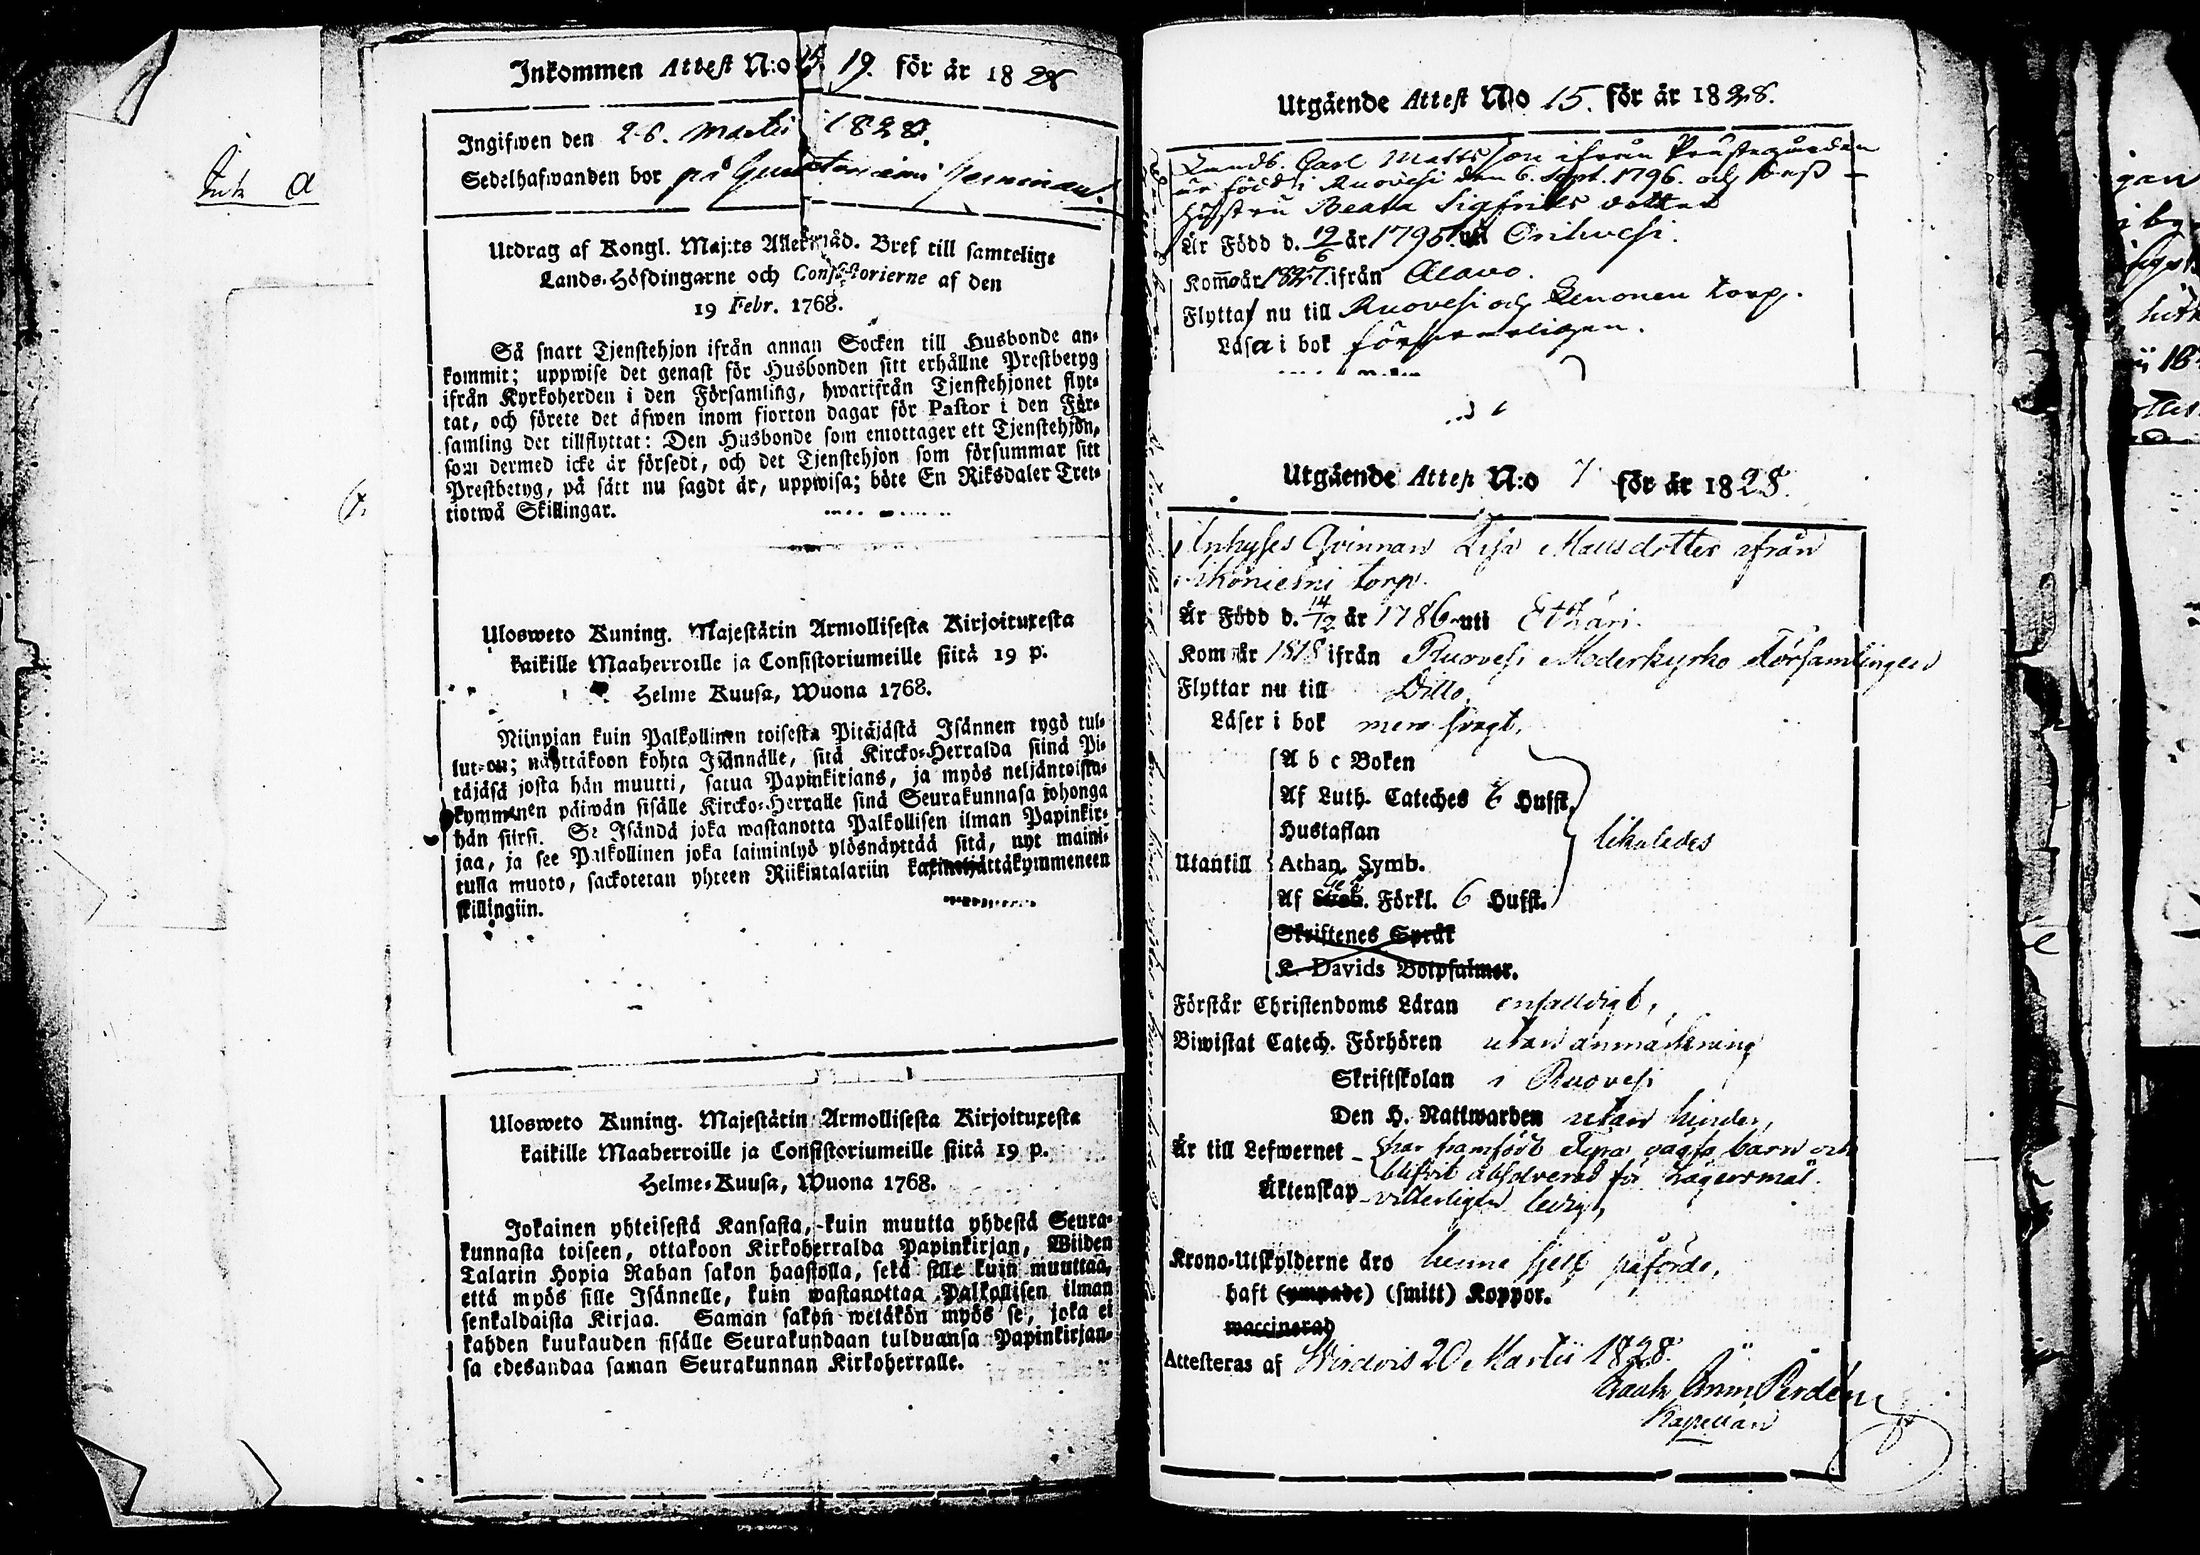 Inkommen Attest N:o 19. för år 1828
Ingifwen den 26. Martii 1828.
Sedelhafwanden bor på
Utdrag af Kongl. Maj:ts Allernåd. Bref till samtelige
Lands-Höfdingarne och Consistorierne af den
19 Febr. 1768.
Så snart Tjenstehjon ifrån annan Socken till Husbonde an-
kommit; uppwise det genast för Husbonden sitt erhållne Prestbetyg
ifrån Kyrkoherden i den Församling, hwarifrån Tjenstehjonet flyt-
tat, och förete det äfwen inom fjorton dagar för Pastor i den För-
samling det tillflyttat: Den Husbonde som emottager ett Tjenstehjon,
som dermed icke är försedt, och det Tjenstehjon som försummar sitt
Prestbetyg, på sätt nu sagdt är, uppwisa; böte En Riksdaler Tret-
tiotwå Skillingar.
Ulosweto Kuning. Majestätin Armollisesta Kirjoituxesta
kaikille Maaherroille ja Consistoriumeille siitä 19 p.
Helme Kuusa, Wuona 1768.
Niinpian kuin Palkollinen toisesta Pitäjästä Isännen tygö tul-
lut on; näyttäkoon kohta Isännälle, sitä Kircko-Herralda siinä Pi-
täjäsä josta hän muutti, saatua Papinkirjans, ja myös neljäntoista-
kymmenen päiwän sisälle Kircko-Herralle sinä Seurakunnasa johonga
hän siirsi. Se Isändä joka wastanotta Palkollisen ilman Papinkir-
jaa, ja see Palkollinen joka laiminlyö ylösnäyttää sitä, nyt maini-
tulla muoto, sackotetan yhteen Riikintalariin
skillingiin.
Ulosweto Kuning. Majestätin Armollisesta Kirjoituxesta
kaikille Maaherroille ja Consistoriumeille siitä 19 p.
Helme-Kuusa, Wuona 1768.
Jokainen yhteisestä Kansasta, kuin muutta yhdestä Seura-
kunnasta toiseen, ottakoon Kirkoherralda Papinkirjan, Wiiden
Talarin Hopia Rahan sakon haastolla, sekä sille kuin muuttaa,
että myös sille Isännelle, kuin wastanottaa Palkollisen ilman
senkaldaista Kirjaa. Saman sakon wetäkön myös se, joka ei
kahden kuukauden sisälle Seurakundaan tulduansa Papinkirjan-
sa edesandaa saman Seurakunnan Kirkoherralle.
Utgående Attest No 15. för år 1828.
Carl Mattsson ifrån Prästegården
är född i Ruovesi den 6. Sept. 1796. och dess
Hustru Beata Sigfrids dotter
Är Född d. 19/6 år 1795 uti Orihvesi.
Kom år 1827. ifrån Alavo.
Flyttar nu till Ruovesi och torp.
Läsa i bok försvarligen.
Utgående Attest N:o 7 för år 1828.
Inhyses Qvinnan Lisa Mattsdotter ifrån
torp.
Är Född d. 14/12 år 1786 uti Etzäri.
Kom år 1818 ifrån Ruovesi Moderkyrko Församlingen
Flyttar nu till Ditto.
Läser i bok men svagt,
Utantill
A b c Boken
Af Luth. Cateches 6 Hufst.
Hustaflan
Athan. Symb.
Af Förkl. 6 Hufst.
likaledes
Skriftenes Språk
K. Davids Botpsalmer.
Förstår Christendoms Läran enfalldigt,
Biwistat Catech. Förhören utan anmärkning
Skriftskolan i Ruovesi
Den H. Nattwarden utan hinder,
Är till Lefwernet har framfödt barn och
blifvit absolverad för lägersmål.
Äktenskap vitterligen ledig,
Krono-Utskylderne äro henne sjelf påförde,
haft (ympade) (smitt) Koppor.
waccinerad
Attesteras af Wirdois 20 Martii 1828.
Kapellan